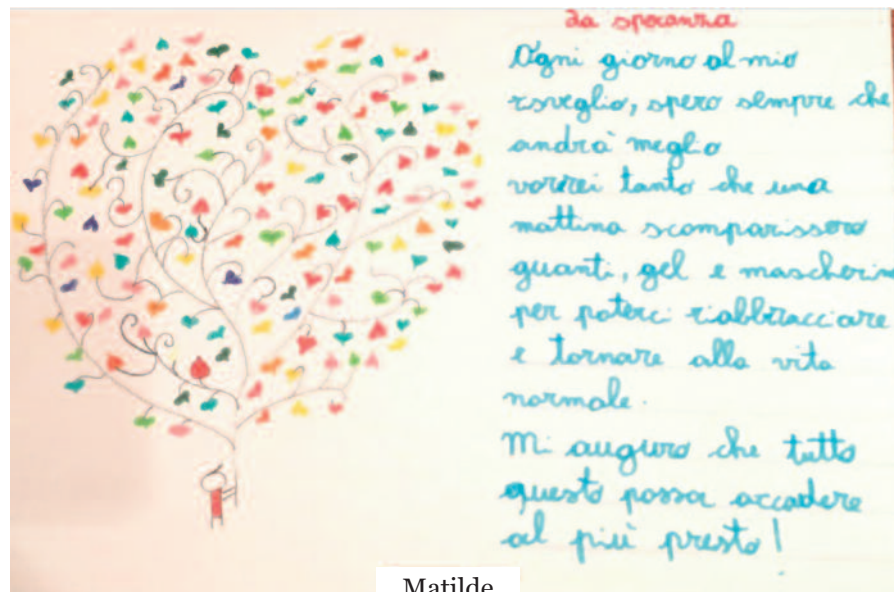 La speranza
Ogni giorno al mio
risveglio, spero sempre che
andrà meglio
vorrei tanto che una
mattina scomparissero
guanti, gel e mascherin
per poterci riabbracciare
e tornare alla vita
normale.
Mi auguro che tutto
questo possa accadere
al più presto!
Matilde